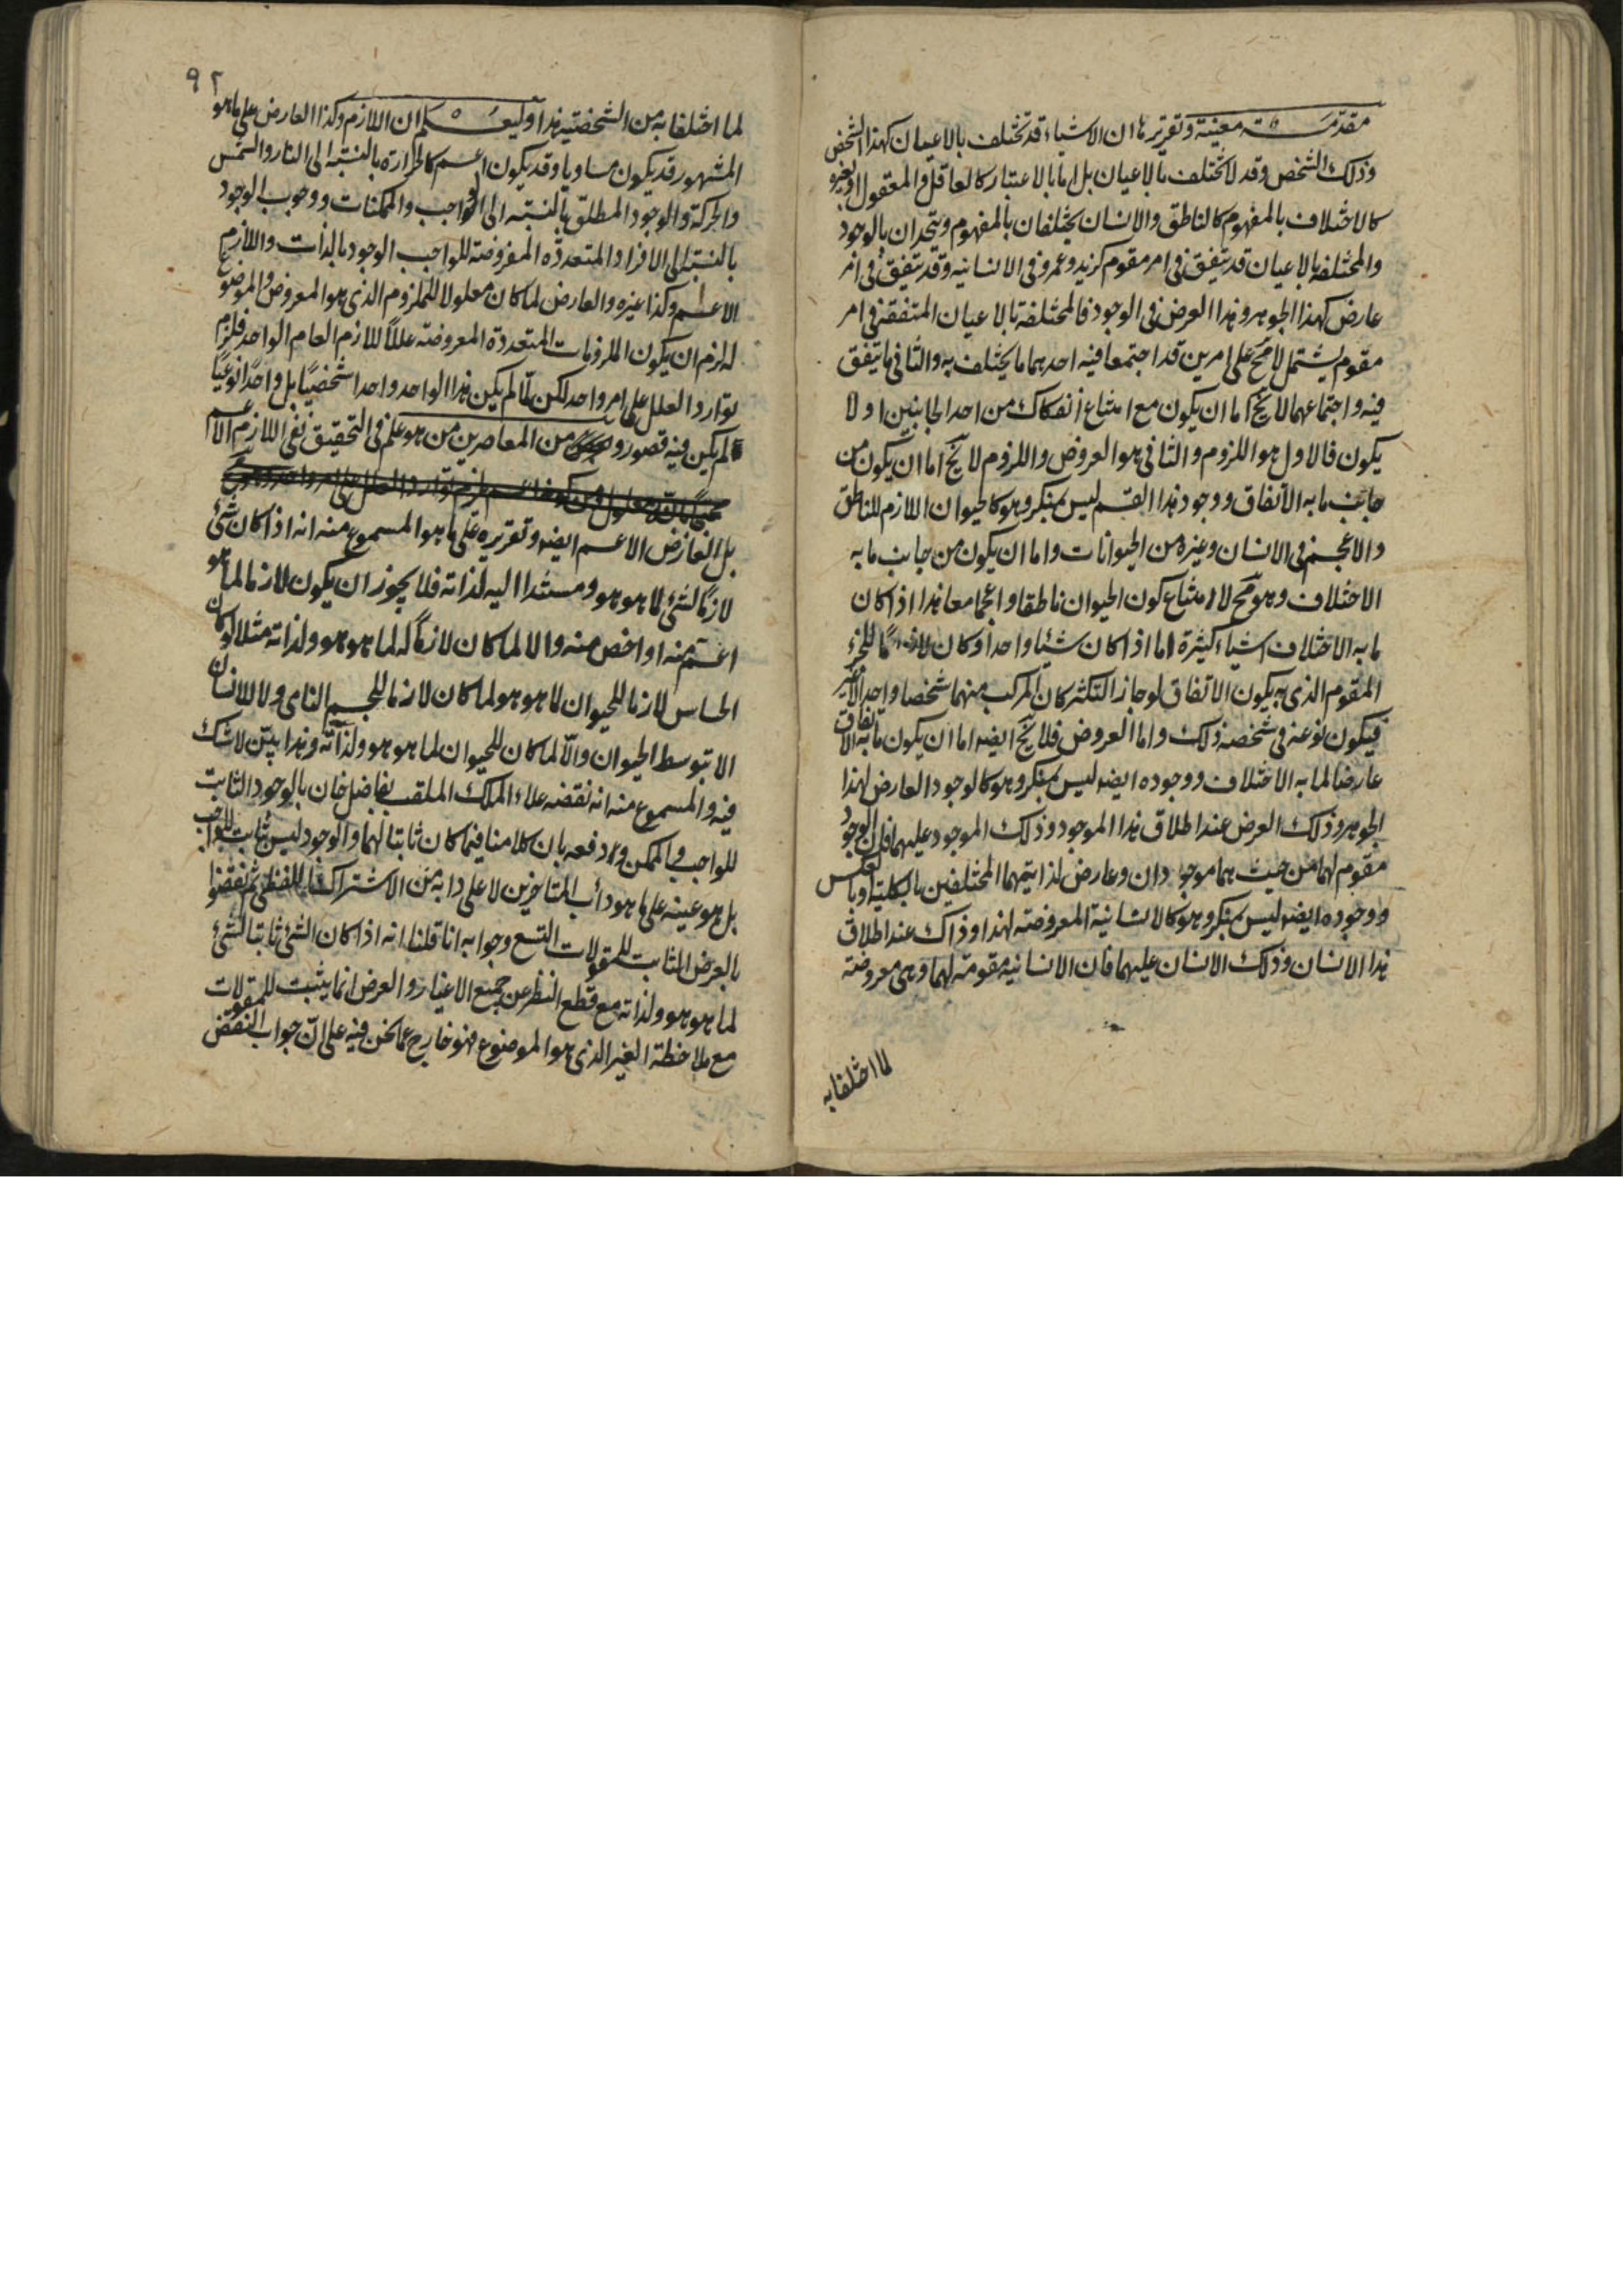 مقدمة معينة وتقريرها ان الاشياء قد تختلف بالاعيان كهذا الشخص
وذلك الشخص وقد لا تختلف بالاعيان بل اما بالاعتبار كالعاقل والمعقول او بغيره
كالاختلاف بالمفهوم كالناطق والانسان يختلفان بالمفهوم ويتحدان بالوجود
والمختلفة بالاعيان قد تتفق في امر مقوم كزيد وعمرو في الانسانية وقد تتفق في امر
عارض كهذا الجوهر وهذا العرض في الوجود فالمختلفة بالاعيان المتفقة في امر
مقوم يشتمل لا مح على امرين قد اجتمعا فيه احدهما ما يختلف به والثاني ما يتفق
فيه واجتماعهما لا يخ اما ان يكون مع امتناع انفكاك من احد الجانبين او لا
يكون فالاول هو اللزوم والثاني هو العروض واللزوم لا يخ اما ان يكون من
جانب ما به الاتفاق ووجود هذا القسم ليس بمنكر وهو كالحيوان اللازم للناطق
والاعجم في الانسان وغيره من الحيوانات واما ان يكون من جانب ما به
الاختلاف وهو مح لامتناع كون الحيوان ناطقا واعجما معا هذا اذا كان
ما به الاختلاف اشياء كثيرة اما اذا كان شيئا واحدا وكان لازما للجزء
المقوم الذي به يكون الاتفاق لو جاز التكثر كان المركب منهما شخصا واحدا لا غير
فيكون نوعه في شخصه ذلك واما العروض فلا يخ ايضه اما ان يكون ما به الاتفاق
عارضا لما به الاختلاف ووجوده ايضه ليس بمنكر وهو كالوجود العارض لهذا
الجوهر وذلك العرض عند اطلاق هذا الموجود وذلك الموجود عليهما فان الوجود
مقوم لهما من حيث هما موجودان وعارض لذاتيهما المختلفين بالكلية او بالعكس
ووجوده ايضه ليس بمنكر وهو كالانسانية المعروضة لهذا وذاك عند اطلاق
هذا الانسان وذلك الانسان عليهما فان الانسانية مقومة لهما وهي معروضة
لما اختلفا به
٩٢
لما اختلفا به من الشخصية هذا وليعلم ان اللازم وكذا العارض على ما هو
المشهور قد يكون مساويا وقد يكون اعم كالحرارة بالنسبة الى النار والشمس
والحركة والوجود المطلق بالنسبة الى الواجب والممكنات ووجوب الوجود
بالنسبة الى الافراد المتعدده المفروضة للواجب الوجود بالذات واللازم
الاعم وكذا غيره والعارض لما كان معلولا للملزوم الذي هو المعروض والموضوع
له لزم ان يكون الملزومات المتعددة المعروضة عللا للازم العام الواحد فلزم
توارد العلل على امر واحد لكن لما لم يكن هذا الواحد واحدا شخصيا بل واحدا نوعيا
لم يكن فيه قصور و من المعاصرين من هو علم في التحقيق نفى اللازم الاعم
بل العارض الاعم ايضه وتقريره على ما هو المسموع منه انه اذا كان شئ
لازما لشئ لما هو هو ومستندا اليه لذاته فلا يجوز ان يكون لازما لما هو
اعم منه او اخص منه والا لما كان لازما له لما هو هو ولذاته مثلا لو كان
الحساس لازما للحيوان لما هو هو لما كان لازما للجسم النامي ولا للانسان
الا بتوسط الحيوان والا لما كان للحيوان لما هو هو ولذاته وهذا بين لا شك
فيه والمسموع منه انه نقضه علاء الملك الملقب بفاضل خان بالوجود الثابت
للواجب والممكن ودفعه بان كلامنا فيما كان ثابتا لهما والوجود ليس ثابت للواجب
بل هو عينه على ما هو دأب المتاخرين لا على دابه من الاشتراك اللفظي ثم نقضوا
بالعرض الثابت للمقولات التسع وجوابه انا قلنا انه اذا كان الشئ ثابتا لشئ
لما هو هو ولذاته مع قطع النظر عن جميع الاغيار والعرض انما يثبت للمقولات
مع ملاحظة الغير الذي هو الموضوع فهو خارج عما نحن فيه على ان جواب النقض